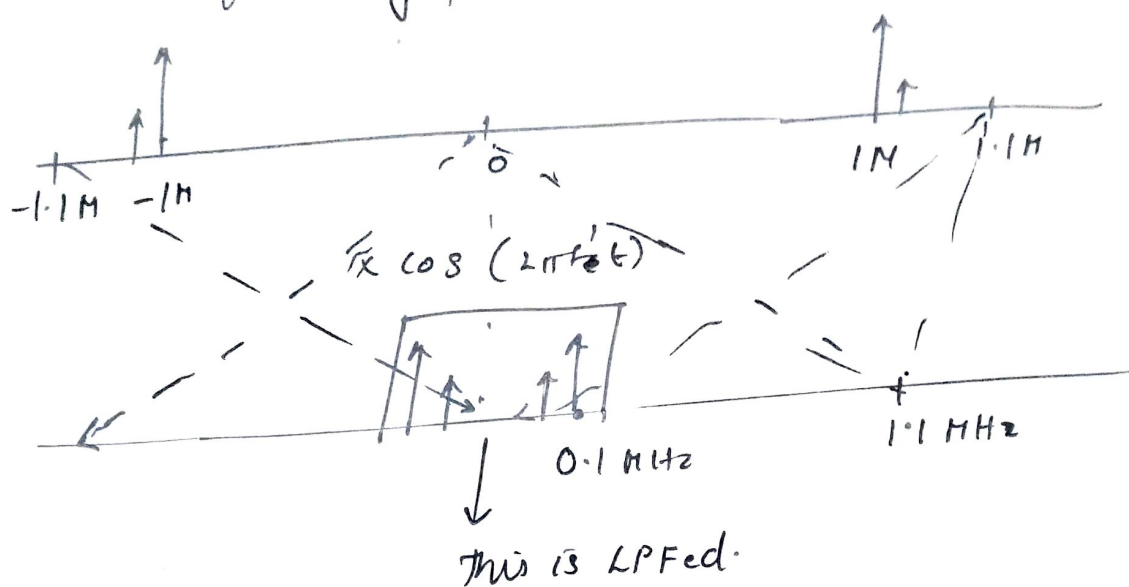 0
-1.1M -1M 1M 1.1M
cos (2πf_c t)
0.1 MHz 1.1 MHz
This is LPFed.